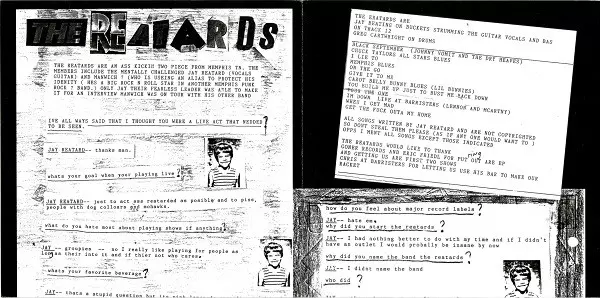 THE REATARDS
THE REATARDS ARE AN ASS KICKIN TWO PIECE FROM MEMPHIS TN, THE
MEMBERS INCLUDE THE MENTALLY CHALLENGED JAY REATARD (VOCALS
GUITAR) AND MANWICH ? (WHO IS USEING AN ALIAS TO PROTECT HIS
IDENTITY ( HES A BIG ROCK N ROLL STAR IN ANOTHER MEMPHIS PUNK
ROCK ? BAND.) ONLY JAY THEIR FEARLESS LEADER WAS AVLE TO MAKE
IT FOR AN INTERVIEW MANWICH WAS ON TOUR WITH HIS OTHER BAND
IVE ALL WAYS SAID THAT I THOUGHT YOU WERE A LIVE ACT THAT NEEDED
TO BE SEEN.
JAY REATARD-- thanks man.
whats your goal when your playing live?
JAY REATARD-- just to act ass reatarded as posible and to piss,
people with dog collours and mohawks.
what do you hate most about playing shows if anything?
JAY-- groupies -- no I really like playing for people as
long as their into it and if thier not who cares.
whats your favorite beverage?
JAY-- thats a stupid question but its
THE REATARDS ARE
JAY BEATING ON BUCKETS STRUMMING THE GUITAR VOCALS AND BAS
ON TRACK 12
GREG CARTWRIGHT ON DRUMS
BLACK SEPTEMBER (JOHNNY VOMIT AND THE DRY HEAVES)
CHUCK TAYLORS ALL STARS BLUES
I LIE TO
MEMPHIS BLUES
OH YEA GO
GIVE IT TO ME
CAROT BELLY BUNNY BLUES (LIL BUNNIES)
YOU BUILD ME UP JUST TO BUST ME BACK DOWN
THE ONE
IM DOWN LIVE AT BARRISTERS (LENNON AND MCARTNY)
WHEN I GET MAD
GET THE FUCK OUTA MY HOME
ALL SONGS WRITTEN BY JAY REATARD AND ARE NOT COPYRIGHTED
SO DONT STEAL THEM PLEASE (AS IF ANY ONE WOULD WANT TO )
OPPS I MENT ALL SONGS EXCEPT THOSE INDICATED
THE REATARDS WOULD LIKE TO THANKE
GONER RECORDS AND ERIC FRIEDL FOR PUT OUT ARE EP
AND GETTING US ARE FIRST TWO SHOWS
CHRIS AT BARRISTERS FOR LETTING US USE HIS BAR TO MAKE OUR
RACKET
how do you feel about major record labels?
JAY-- hate em.
why did you start the reatards?
JAY-- I had nothing better to do with my time and if I didn't
have an outlet I would probably be insane by now
why did you name the band the reatards?
JAY-- I didnt name the band
who did?